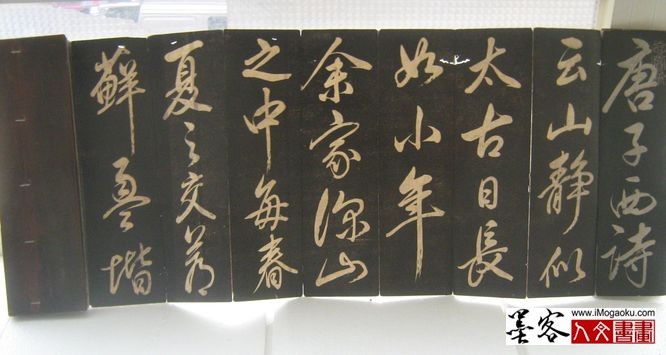 唐子西詩
云山静似
太古日長
如小年
余家深山
之中每春
夏之交蒼
蘚盈堦
墨客
www.iMogaoku.com
人文書畫